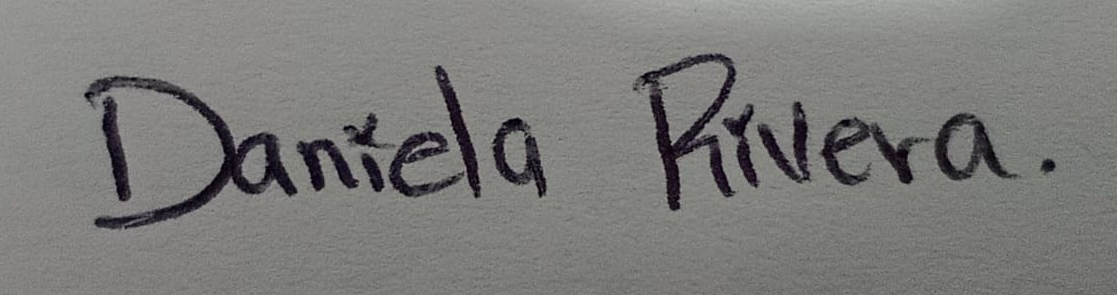 Daniela Rivera.